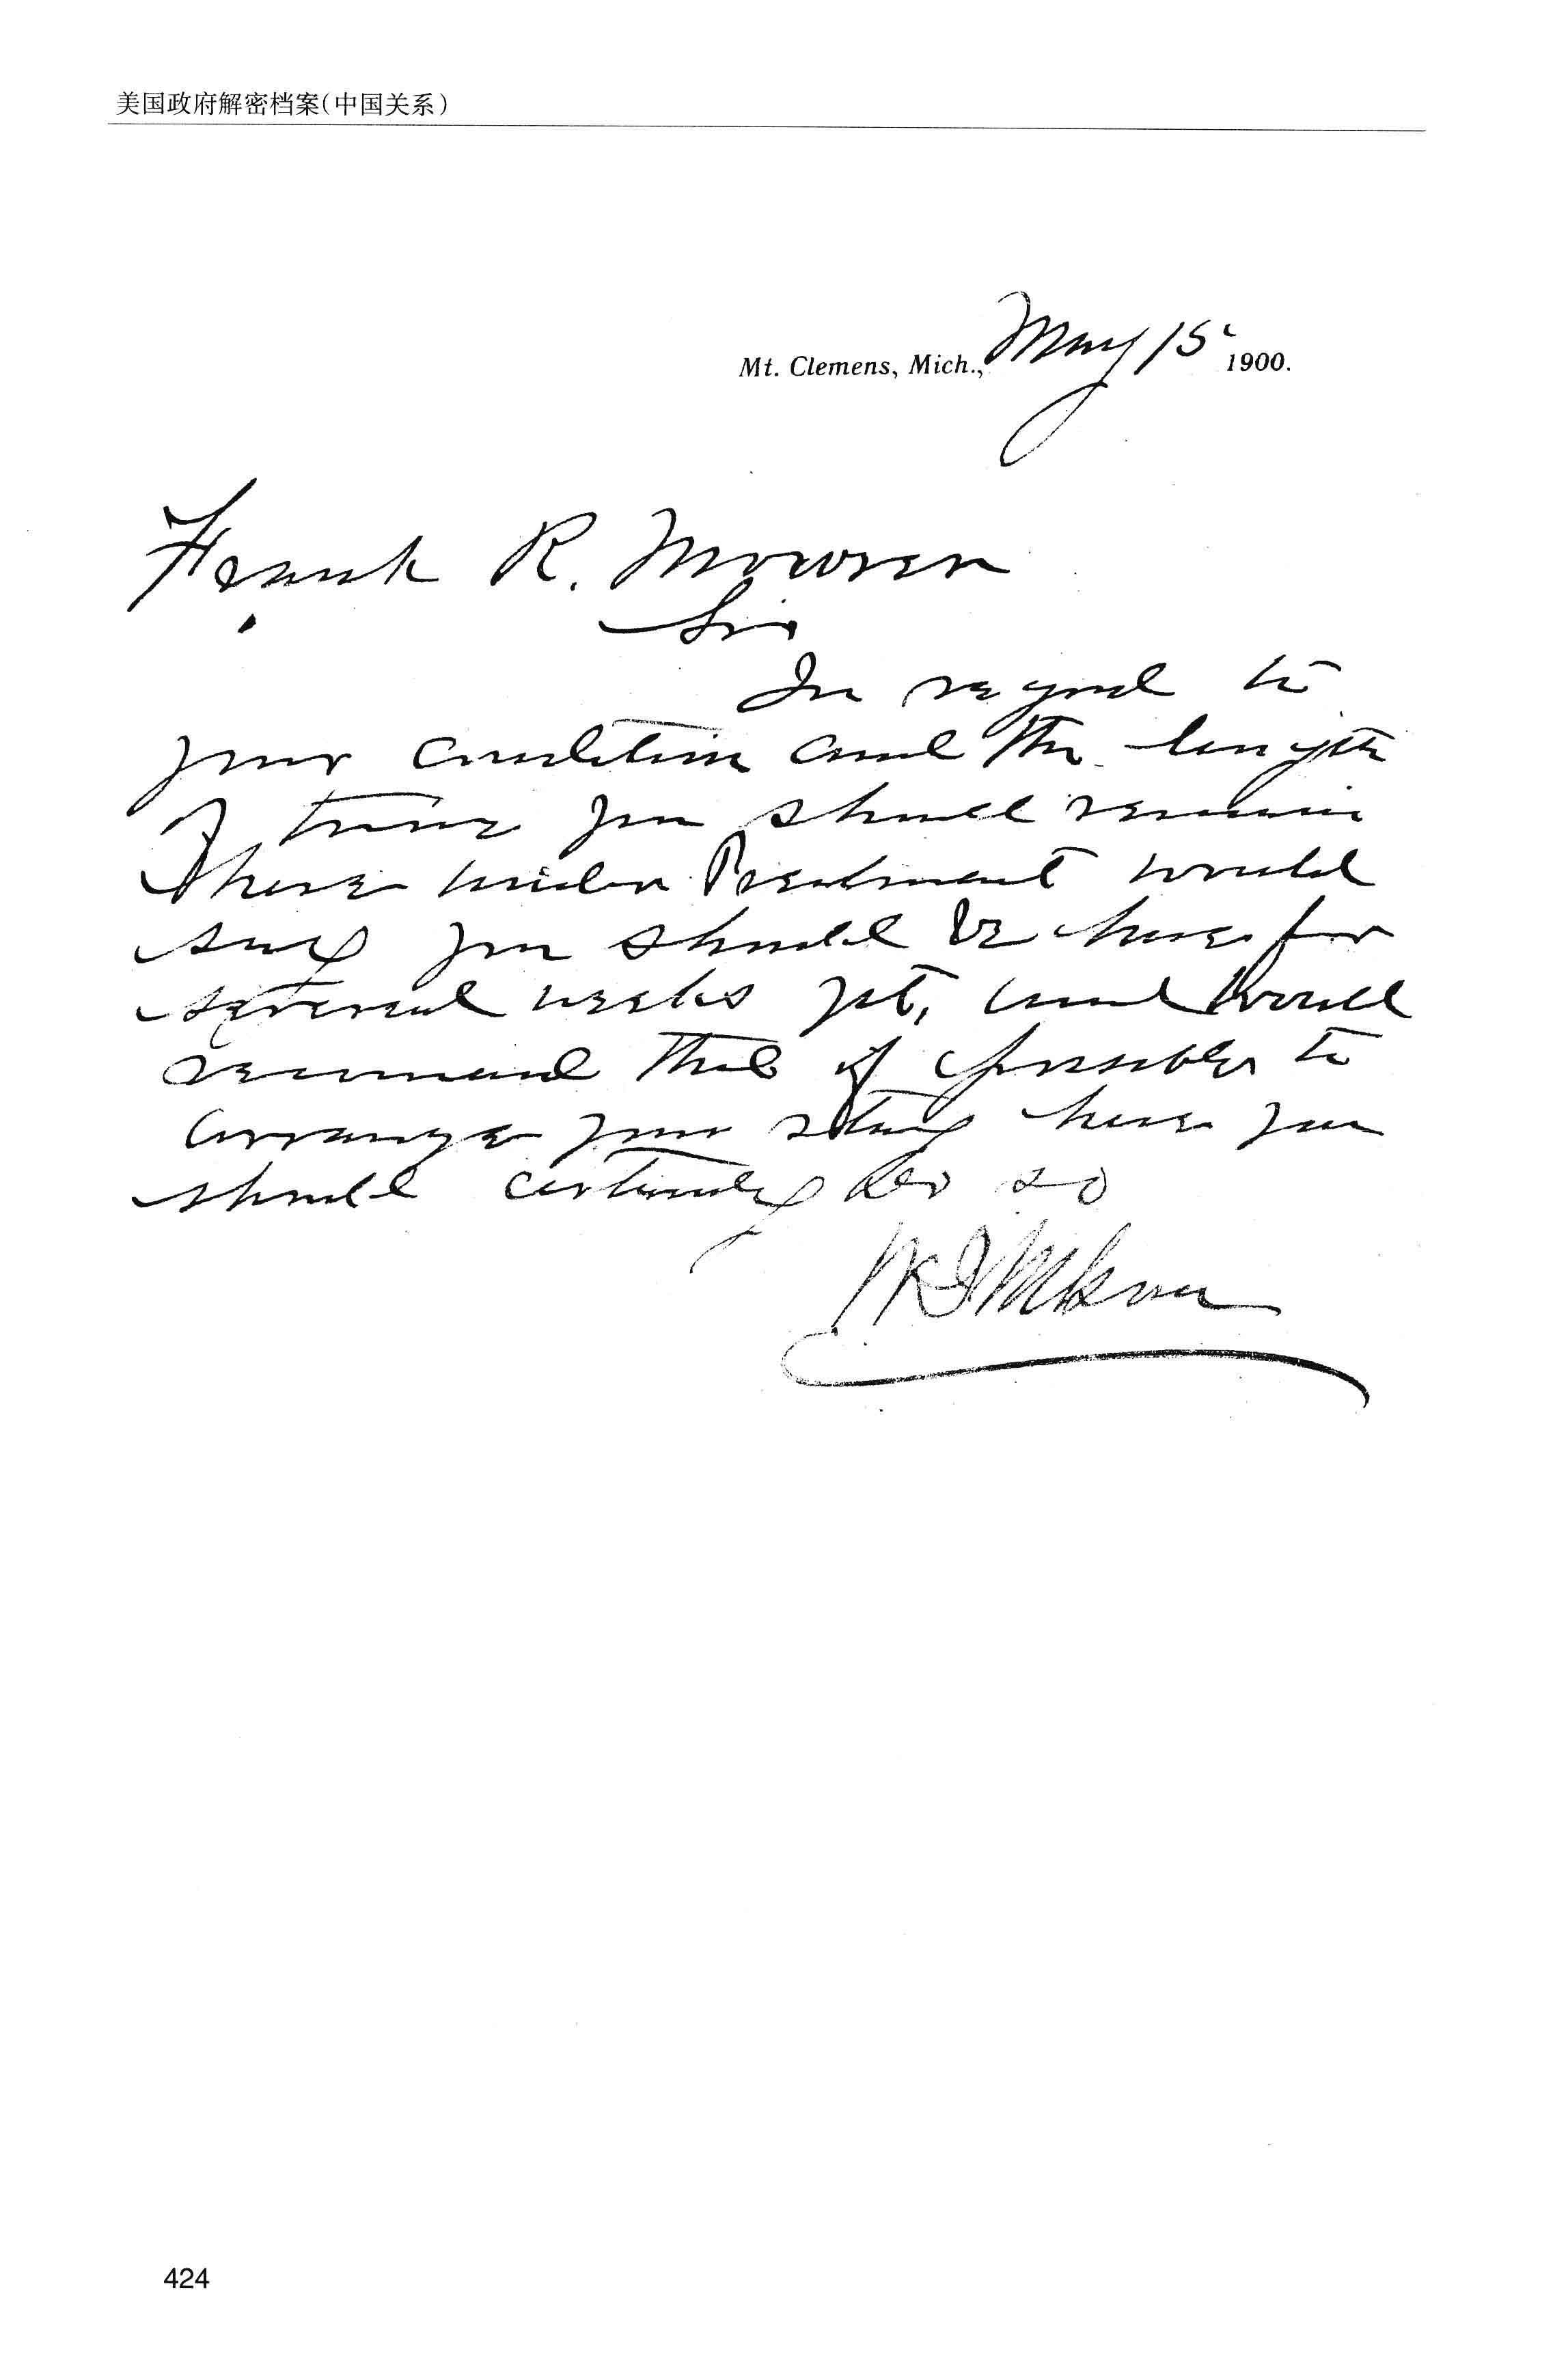 美国政府解密档案(中国关系)
Mt. Clemens, Mich., May 15 1900.
Frank R. Mowrer
Sir
In regard to
your condition and the length
of time you should remain
here under Treatment would
say you should be here for
several weeks yet, and would
recommend that if possible to
arrange your stay here you
should certainly do so
424